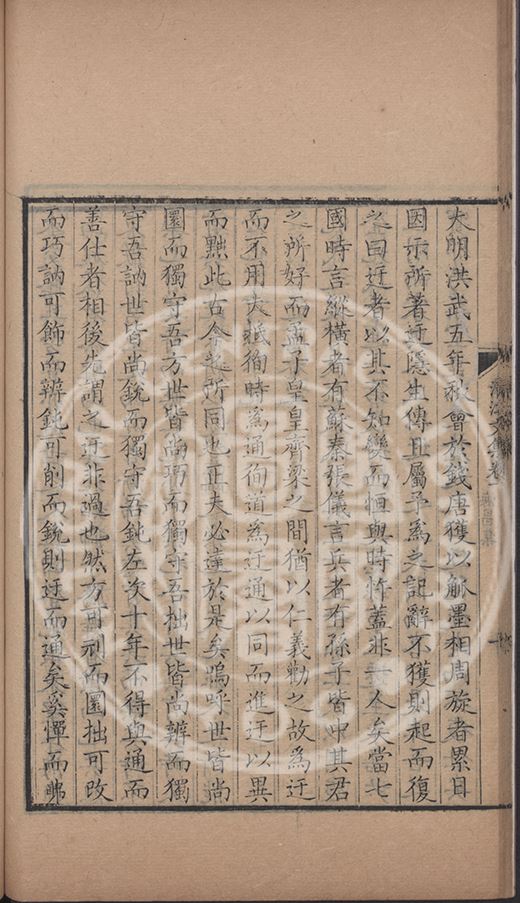 大明洪武五年秋會於錢唐獲以觚墨相周旋者累日
因示所著迂隱生傳且屬予為之記辭不獲則起而復
之曰迂者以其不知變而恒與時忤蓋非一今矣當七
國時言縱橫者有蘇秦張儀言兵者有孫子皆中其君
之所好而孟子皇皇齊梁之間猶以仁義勸之故為迂
而不用夫祗徇時為通徇道為迂通以同而進迂以異
而黜此古今之所同也正夫必達於是矣嗚呼世皆尚
圜而獨守吾方世皆尚巧而獨守吾拙世皆尚辨而獨
守吾訥世皆尚銳而獨守吾鈍左次十年不得與通而
善仕者相後先謂之迂非過也然方可刓而圜拙可改
而巧訥可飾而辨鈍可削而銳則迂而通矣奚憚而弗